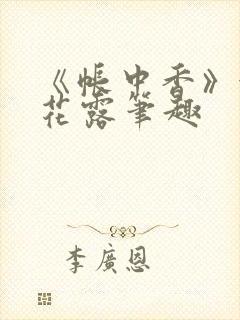 《帐中香》
花露筆趣
李廣恩